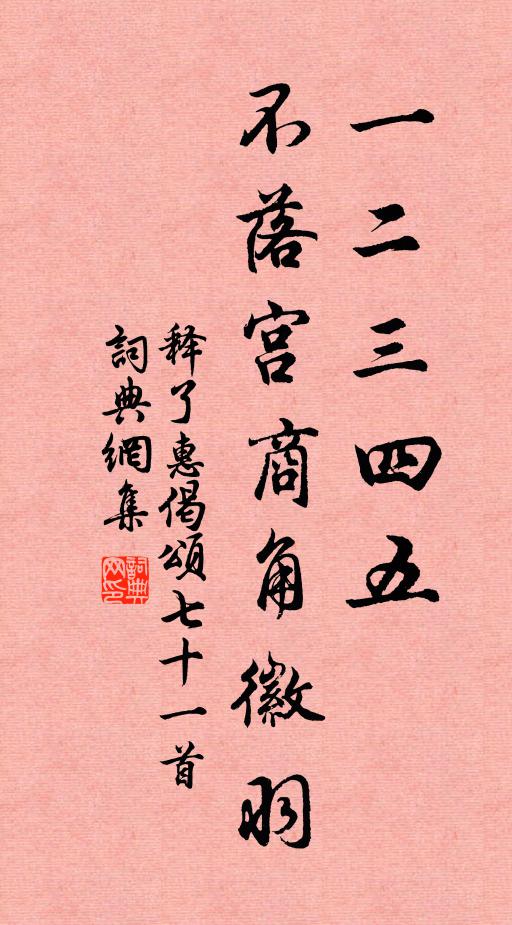 一二三四五
不落宫商角徽羽
释了惠偈頌七十一首
詞典網集
詞典网印